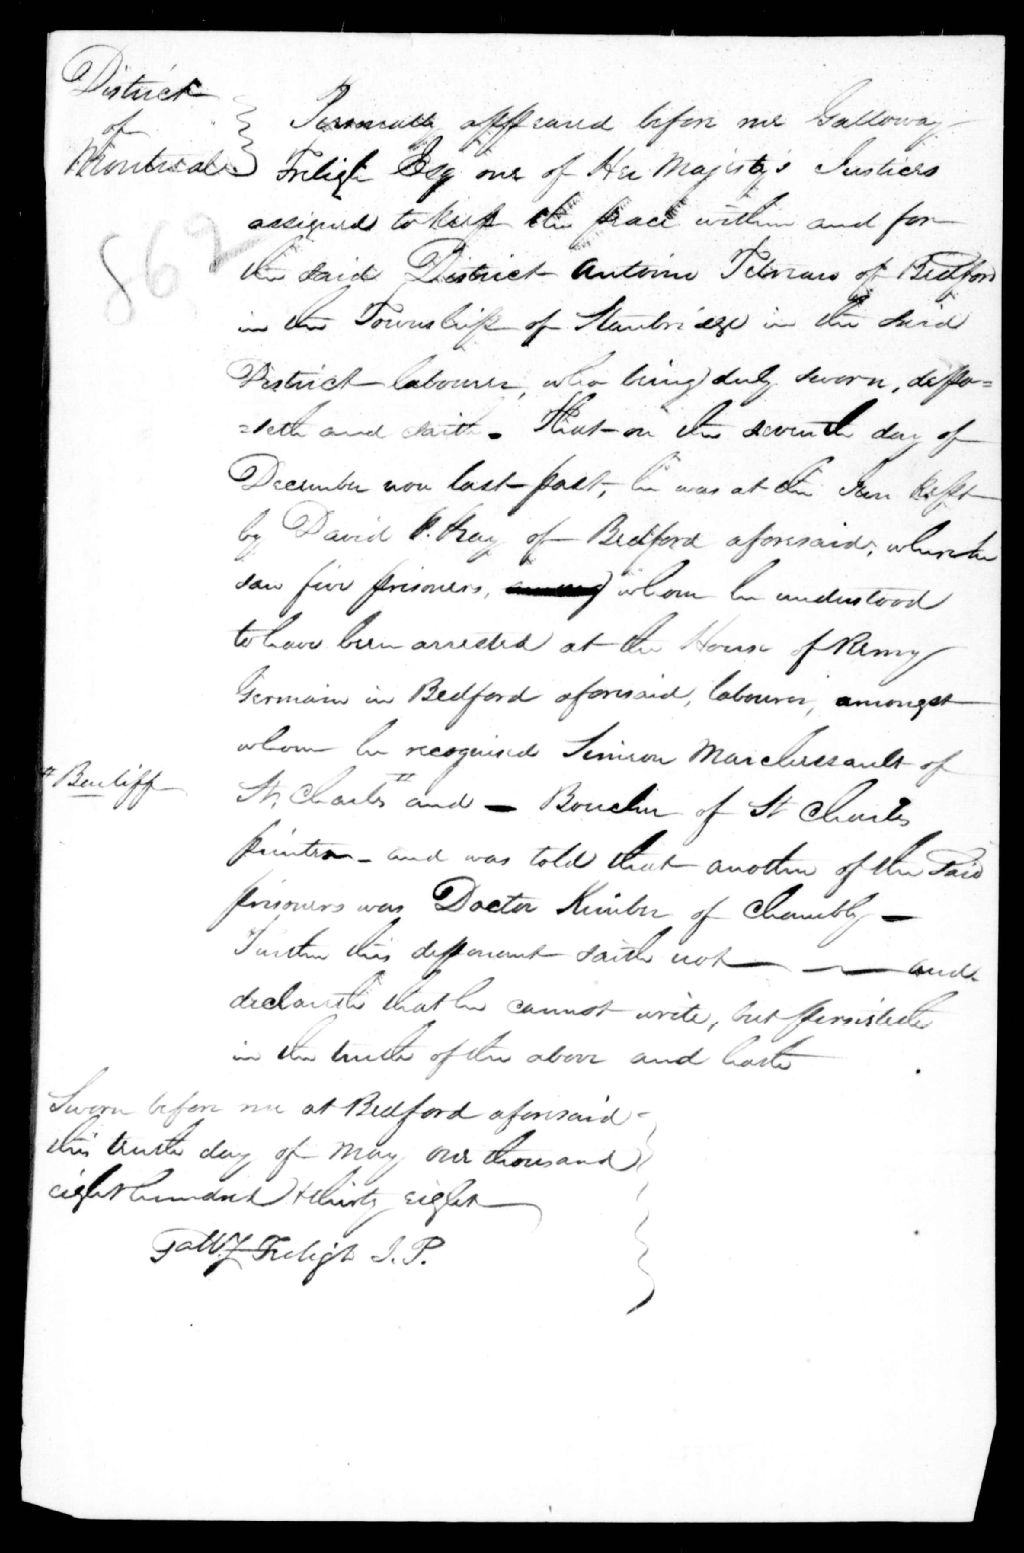 District
of
Montreal
Personally appeared before me Galloway
Freligh Esq one of Her Majesty's Justices
assigned to keep the peace within and for
862
the said District Antoine of Bedford
in the Township of Stanbridge in the said
District labourer, who being duly sworn, depo=
=seth and saith. That on the seventh day of
December now last past, he was at the Inn kept
by David of Bedford aforesaid, where he
saw five prisoners, whom he understood
to have been arrested at the House of Remy
Germain in Bedford aforesaid, labourer, amongst
whom he recognised Simeon Marchessault of
" Bailiff
St. Charles " and — Boucher of St Charles
printer - and was told that another of the said
prisoners was Doctor Kimber of Chambly —
Further this deponent saith not — and
declareth that he cannot write, but persisteth
in the truth of the above and hath
Sworn before me at Bedford aforesaid
this tenth day of May one thousand
eight hundred & thirty eight
Gallw.y Freligh J. P.